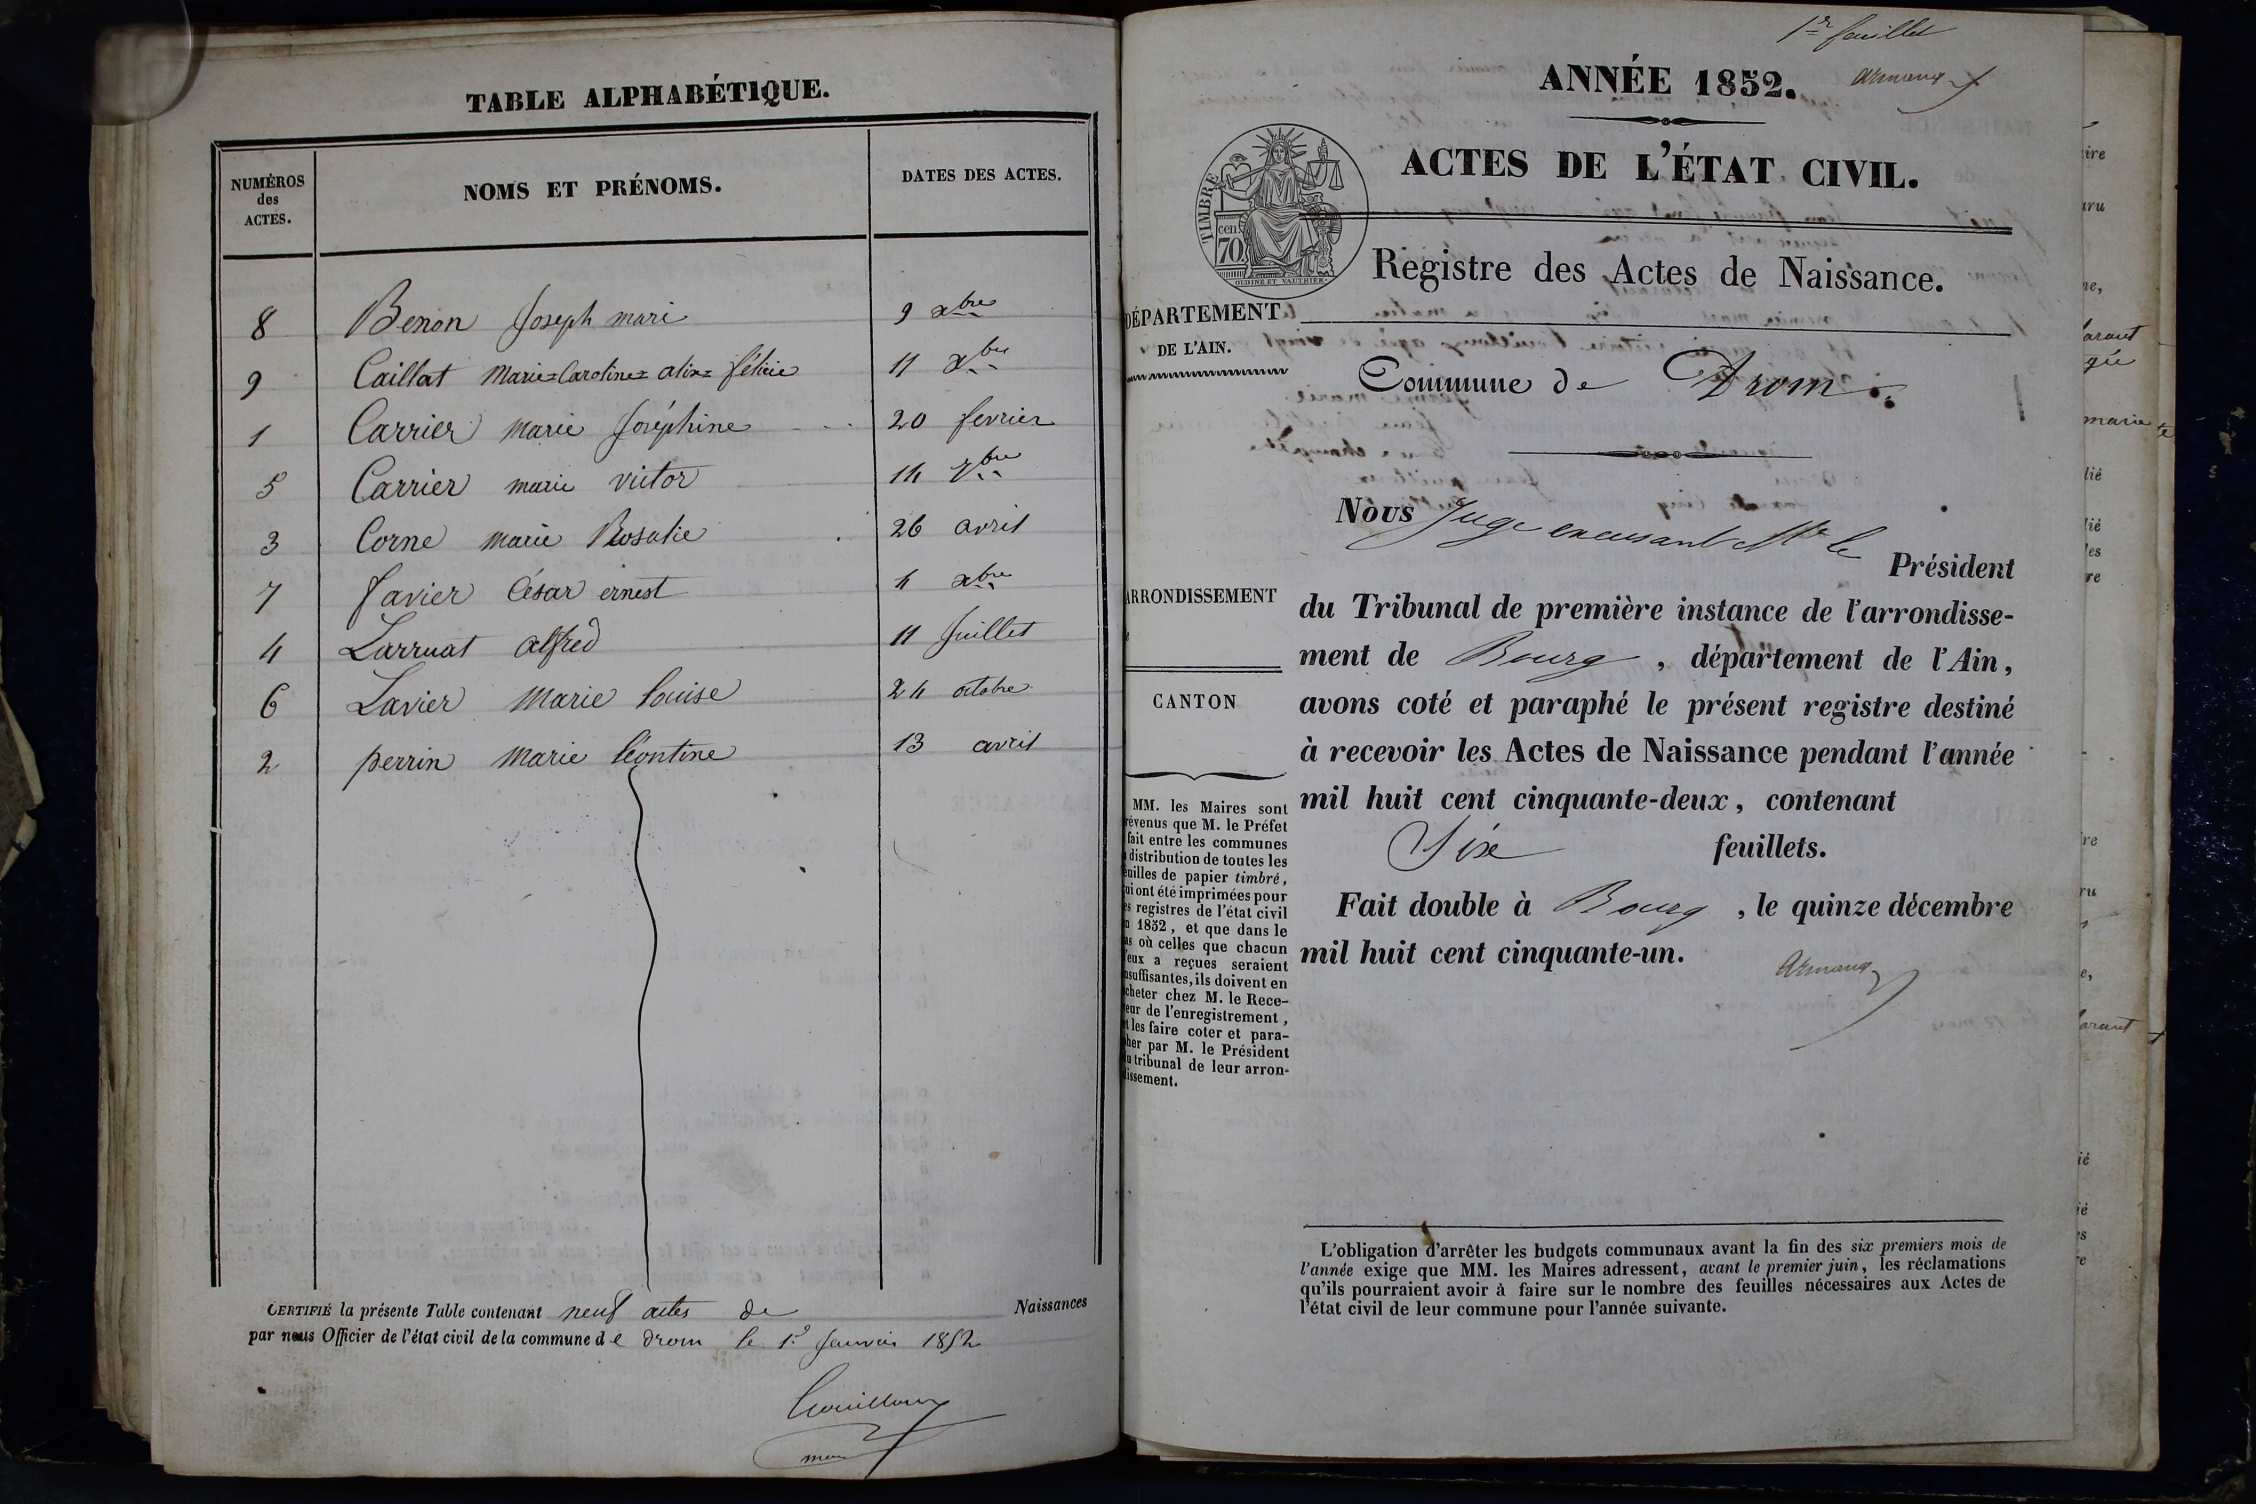 TABLE ALPHABÉTIQUE.
NUMÉROS
des
ACTES.
NOMS ET PRÉNOMS.
DATES DES ACTES.
8 Benon Joseph mari 9 xbre
9 Caillat Marie=Caroline=alix=félicie 11 xbre
1 Carrier marie Joséphine 20 fevrier
5 Carrier marie victor 14 7bre
3 Corne marie Rosalie 26 avril
7 favier César ernest 4 xbre
4 Larruat alfred 11 Juillet
6 Lavier Marie louise 24 octobre
2 perrin Marie léontine 13 avril
CERTIFIÉ la présente Table contenant neuf actes de Naissances
par nous Officier de l'état civil de la commune de drom le 1er Janvier 1852
1er feuillet
ANNÉE 1852.
ACTES DE L'ÉTAT CIVIL.
TIMBRE
70 cen.
OUDINÉ ET VAUTHIER
Registre des Actes de Naissance.
DÉPARTEMENT
DE L'AIN.
Commune de Drom.
ARRONDISSEMENT
CANTON
MM. les Maires sont
révenus que M. le Préfet
fait entre les communes
distribution de toutes les
euilles de papier timbré,
ui ont été imprimées pour
es registres de l'état civil
n 1852, et que dans le
as où celles que chacun
'eux a reçues seraient
nsuffisantes, ils doivent en
cheter chez M. le Rece-
eur de l'enregistrement,
t les faire coter et para-
her par M. le Président
u tribunal de leur arron-
issement.
Nous Juge excusant Mr le
Président
du Tribunal de première instance de l'arrondisse-
ment de Bourg, département de l'Ain,
avons coté et paraphé le présent registre destiné
à recevoir les Actes de Naissance pendant l'année
mil huit cent cinquante-deux, contenant
Six feuillets.
Fait double à Bourg, le quinze décembre
mil huit cent cinquante-un.
L'obligation d'arrêter les budgets communaux avant la fin des six premiers mois de
l'année exige que MM. les Maires adressent, avant le premier juin, les réclamations
qu'ils pourraient avoir à faire sur le nombre des feuilles nécessaires aux Actes de
l'état civil de leur commune pour l'année suivante.